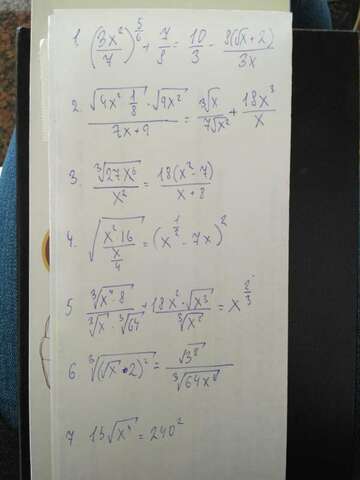 1. (3x²/7)^(5/6) + 7/9 = 10/3 - 8(√x + 2)/3x
2. √(4x² · 1/8) · √(9x²) / (7x + 9) = ³√x / ⁷√x² + 18x³/x
3. ³√(27x⁶) / x² = 18(x² - 7) / (x + 8)
4. √(x² · 16 / (x/4)) = (x^(1/2) - 7x)²
5 ³√(x⁴ · 8) / (³√x · ³√64) + 18x² · √x³ / ³√x² = x^(2/3)
6. ³√((√x · 2)²) = √3⁸ / ³√(64x⁸)
7 15√x⁴ = 240²